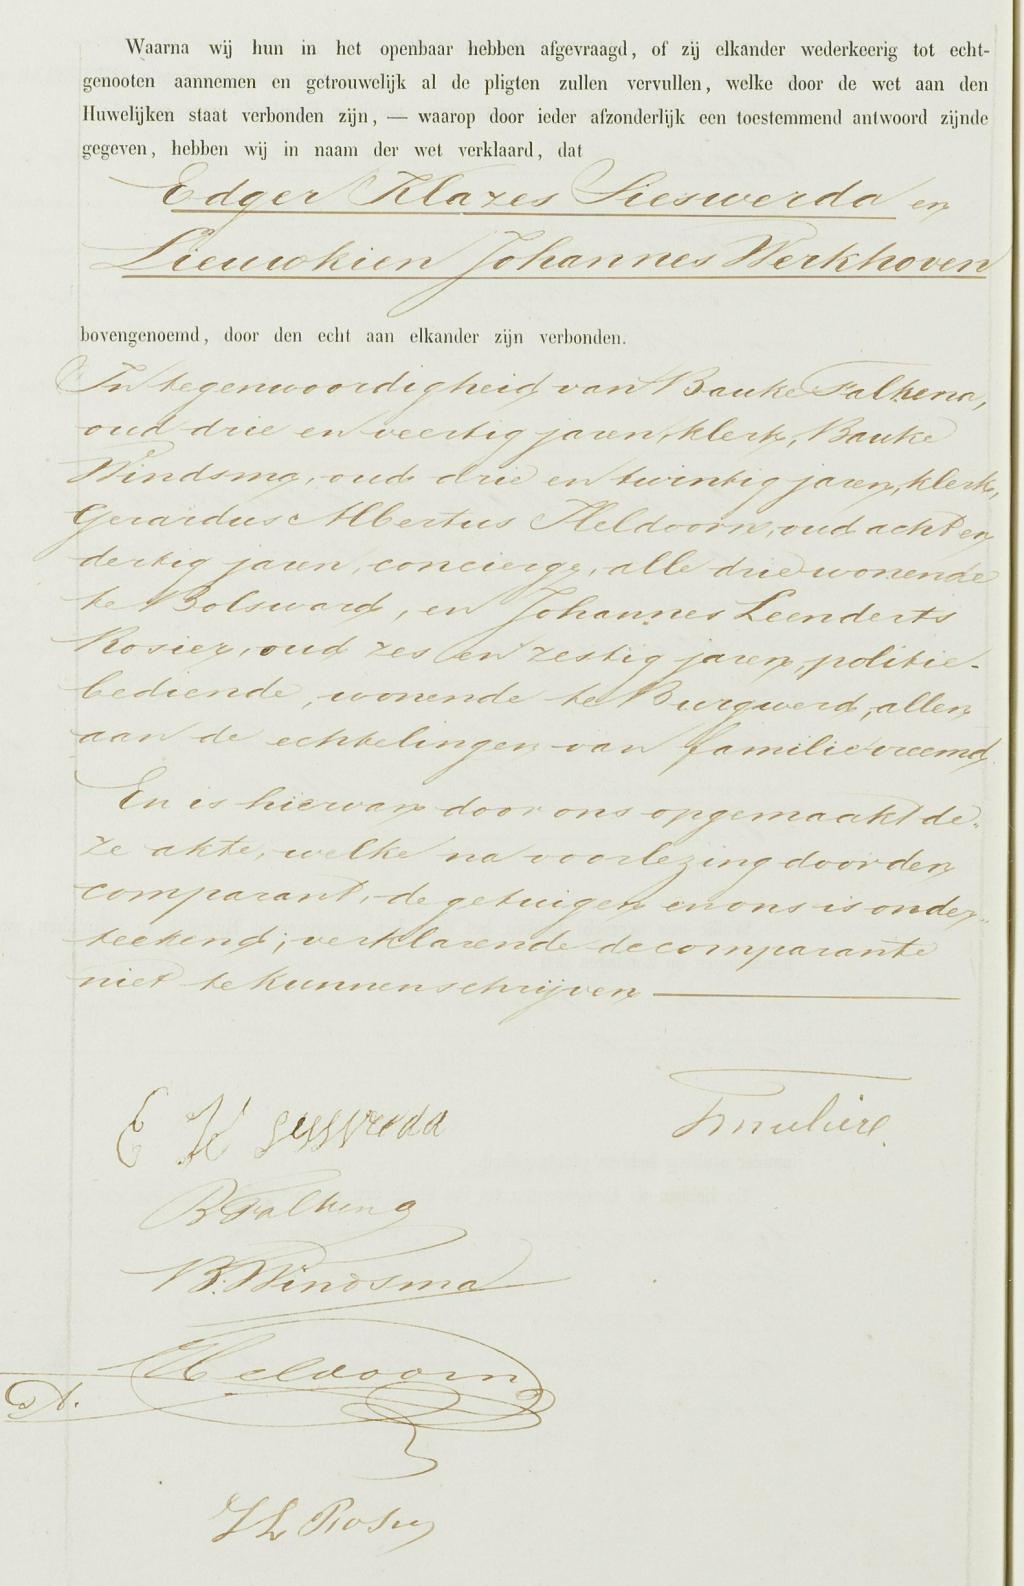 Waarna wij hun in het openbaar hebben afgevraagd, of zij elkander wederkeerig tot echt-
genooten aannemen en getrouwelijk al de pligten zullen vervullen, welke door de wet aan den
Huwelijken staat verbonden zijn, — waarop door ieder afzonderlijk een toestemmend antwoord zijnde
gegeven, hebben wij in naam der wet verklaard, dat
Edger Klazes Sieswerda en
Lieuwkien Johannes Werkhoven
bovengenoemd, door den echt aan elkander zijn verbonden.
In tegenwoordigheid van Bauke Falkena,
oud drie en veertig jaren, klerk, Bauke
Windsma, oud drie en twintig jaren, klerk,
Gerardus Albertus Heldoorn, oud acht en
dertig jaren, concierge, alle drie wonende
te Bolsward, en Johannes Leenderts
Rosier, oud zes en zestig jaren, politie-
bediende, wonende te Burgwerd, allen
aan de echtelingen van familie vreemd.
En is hiervan door ons opgemaakt de-
ze akte, welke na voorlezing door den
comparant, de getuigen en ons is onder-
teekend; verklarende de comparante
niet te kunnen schrijven
E K
B Falkena
B. Windsma
G A. Heldoorn
J L Rosier